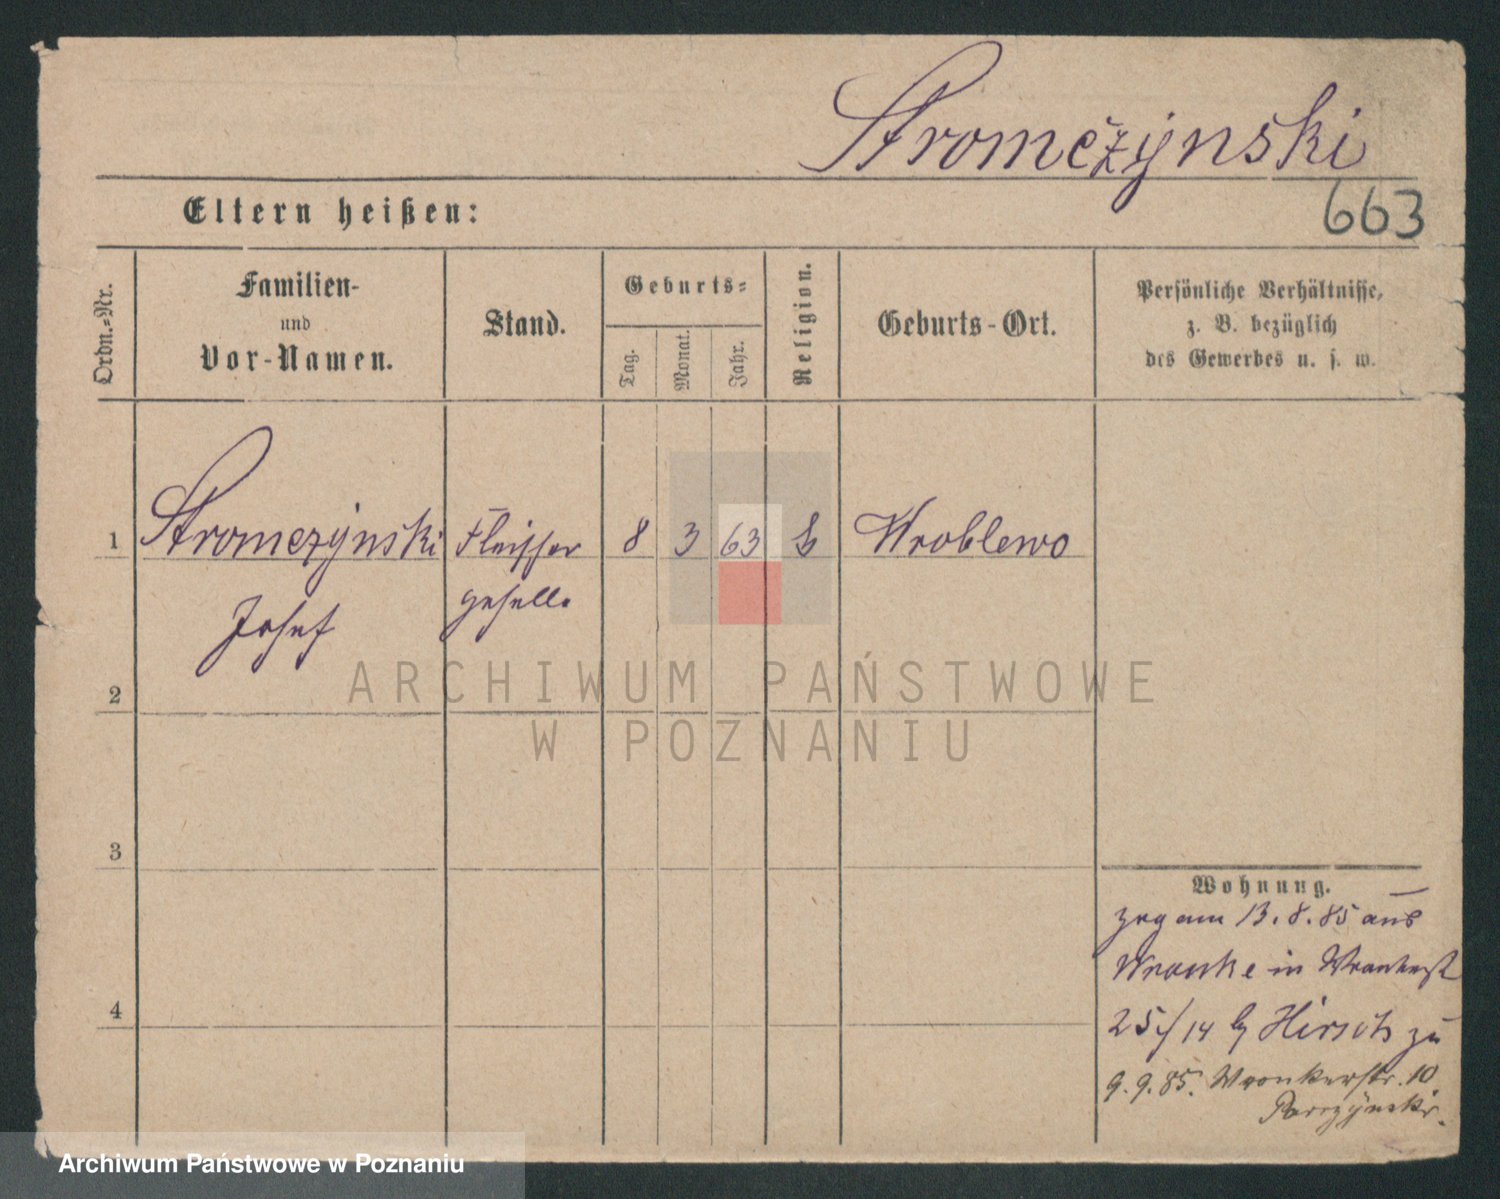 Stromczynski
Eltern heißen:
663
Ordn.=Nr.
Familien-
und
Vor-Namen.
Stand.
Geburts=
Tag.
Monat.
Jahr.
Religion.
Geburts-Ort.
Persönliche Verhältnisse,
z. B. bezüglich
des Gewerbes u. s. w.
1 Stromczynski Fleischer 8 3 63 Wroblewo
geselle
Josef
2
3
4
Wohnung.
zog am 13.8.85 aus
Wronke in Wronkerst
25/14 b Hirsch zu
9.9.85. Wronkerstr. 10
ARCHIWUM PAŃSTWOWE
W POZNANIU
Archiwum Państwowe w Poznaniu